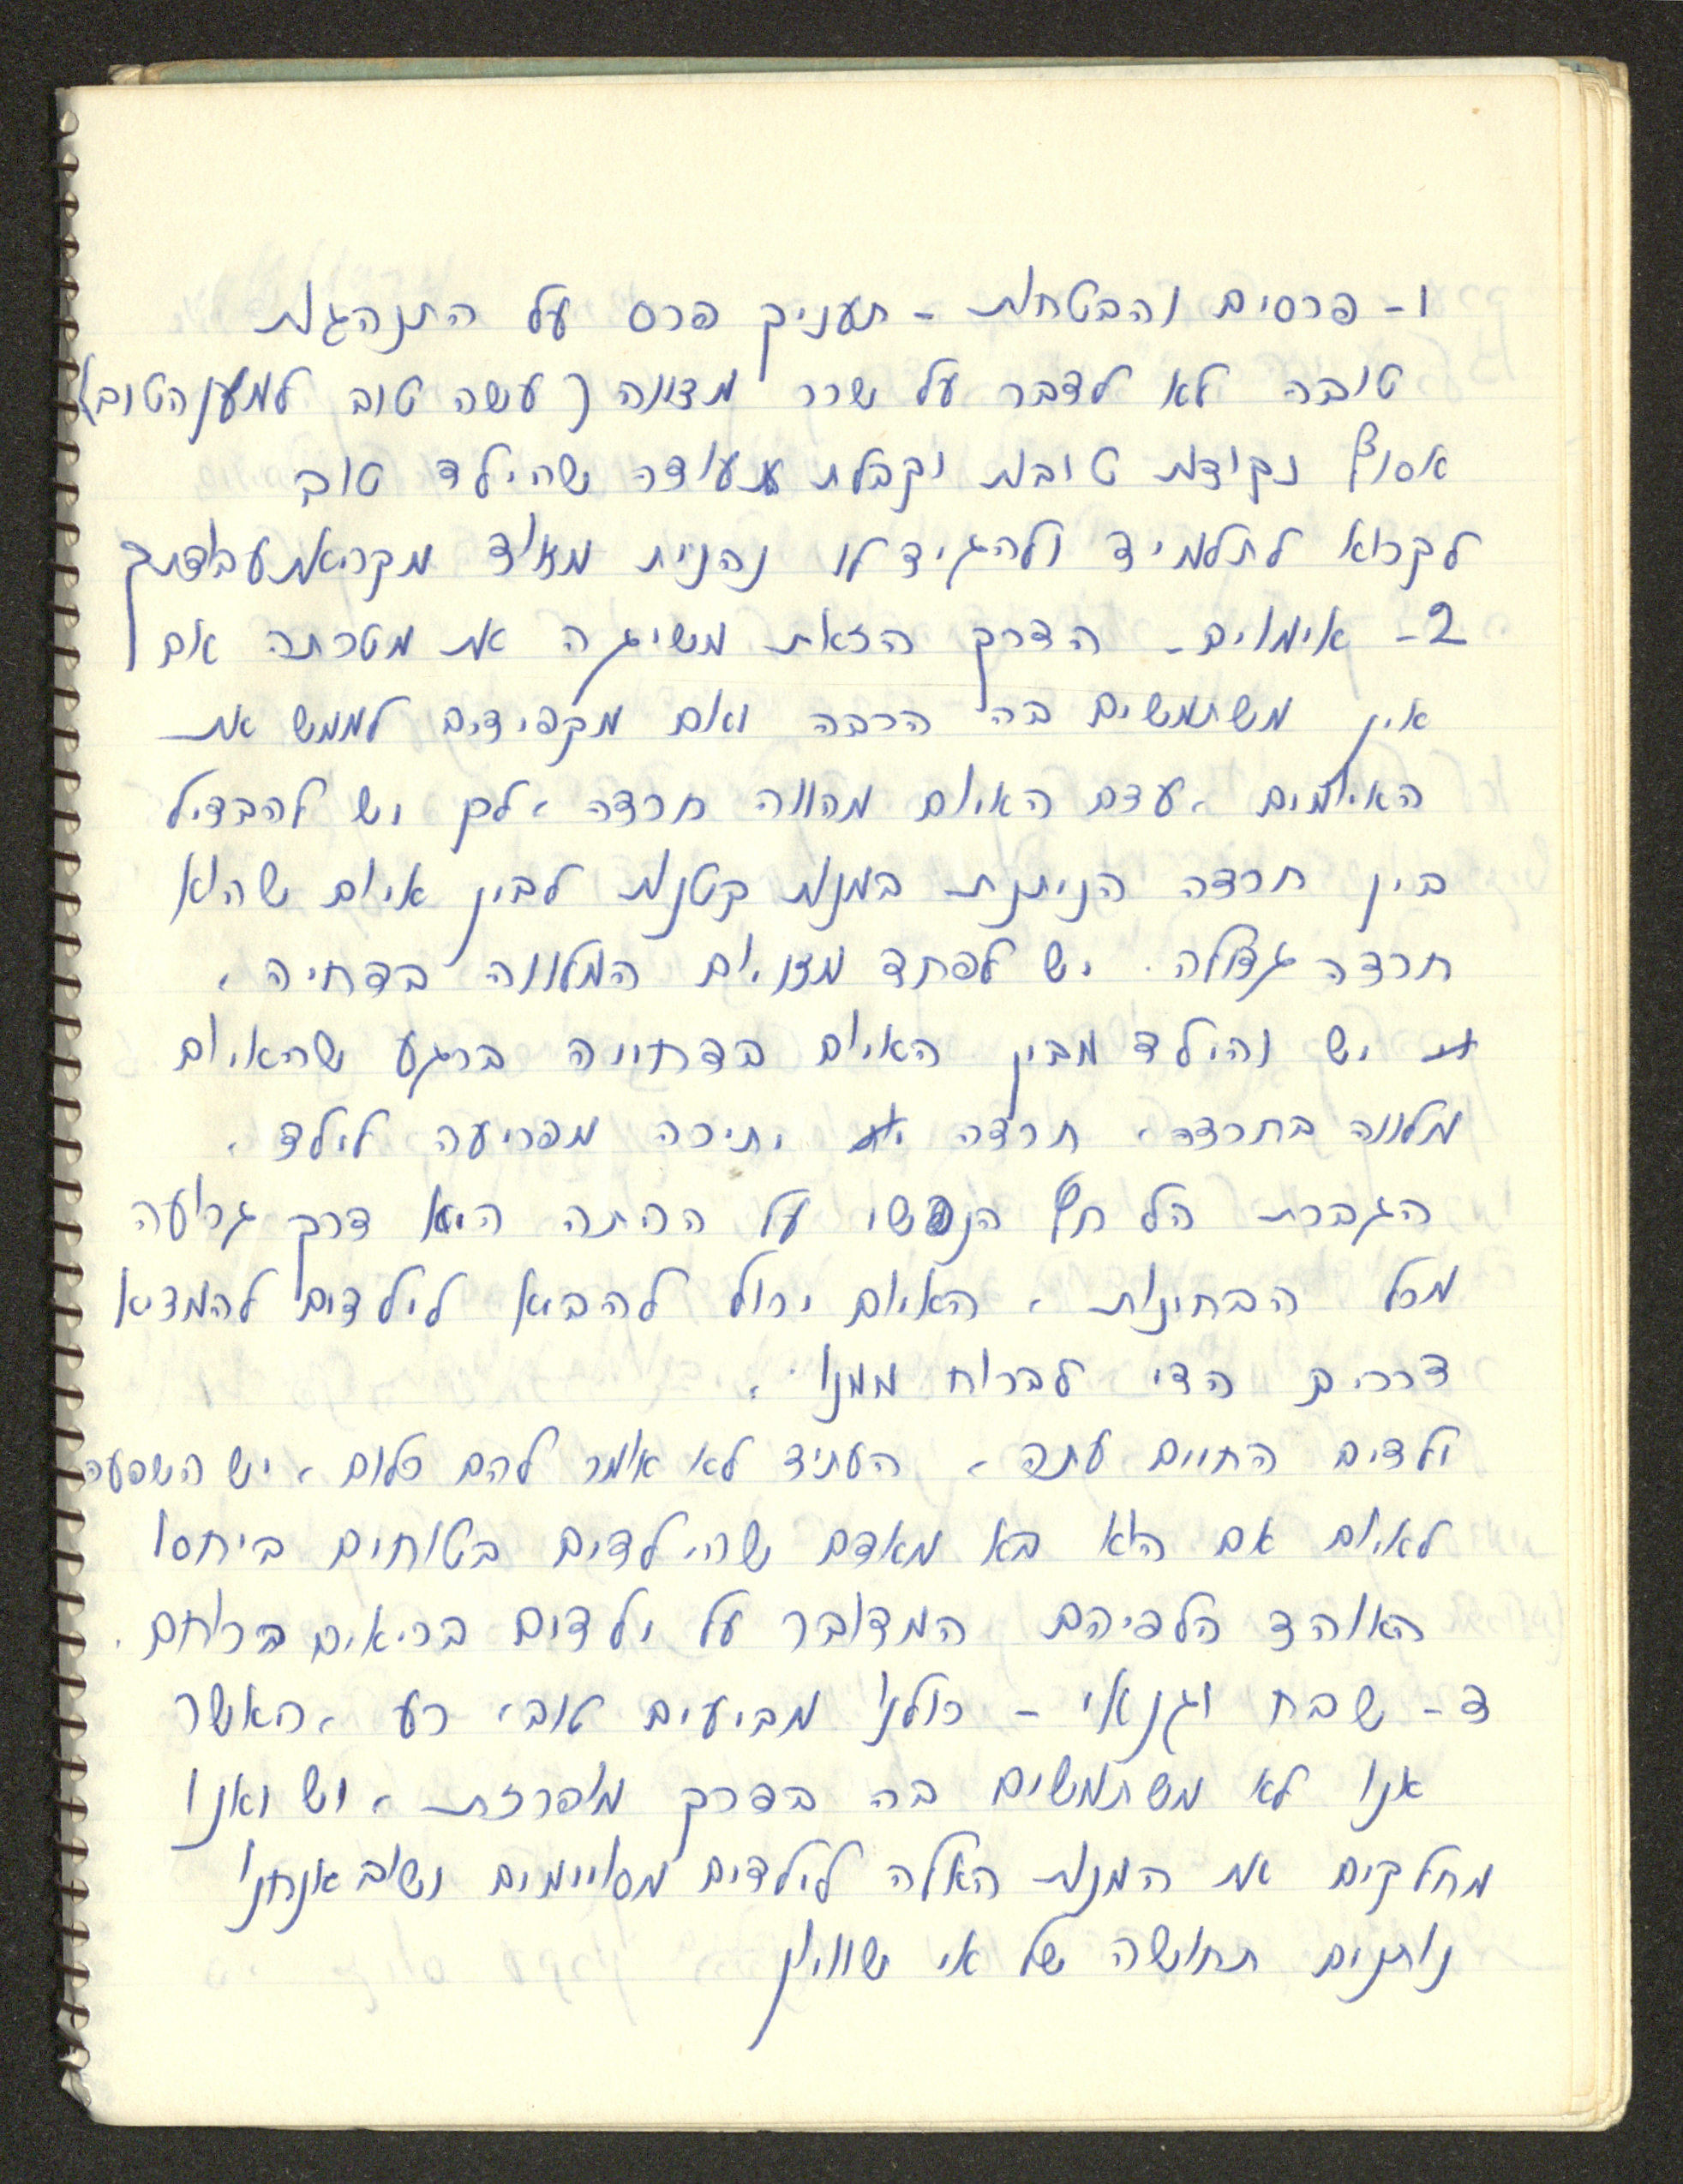 1- פרסים והבטחות - תעניק פרס על התנהגות
טובה לא לדבר על שכר מצווה (עשה טוב למען הטוב)
אסוף נקודות טובות וקבלת תעודה שהילד טוב
לקרוא לתלמיד ולהגיד לו נהנית מאוד מקריאת עבודתך
2- איומים - הדרך הזאת משיגה את מטרתה אם
אין משתמשים בה הרבה ואם מקפידים לממש את
האיומים, עצם האיום מהווה חרדה, לכן יש להבדיל
בין חרדה הניתנת במנות קטנות לבין איום שהוא
חרדה גדולה. יש לפחד מאיום המלווה בדחיה,
יש והילד מבין האיום בדחייה ברגע שהאיום
מלווה בחרדה, חרדה יתירה מפריעה לילד,
הגברת הלחץ הנפשי על הכתה היא דרך גרועה
מכל הבחינות, האיום יכול להביא לילדים להמציא
דרכים כדי לברוח ממנו,
ילדים החיים עתה, העתיד לא אומר להם כלום, יש השפעה
לאיום אם הוא בא מאדם שהילדים בטוחים ביחסו
האוהד כלפיהם המדובר על ילדים בריאים ברוחם.
3- שבח וגנאי - כולנו מביעים טוב, רע, כאשר
אנו לא משתמשים בה בדרך מופרזת, ויש ואנו
מחלקים את המנות האלה לילדים מסויימים ושוב אנחנו
נותנים תחושה של אי שוויון